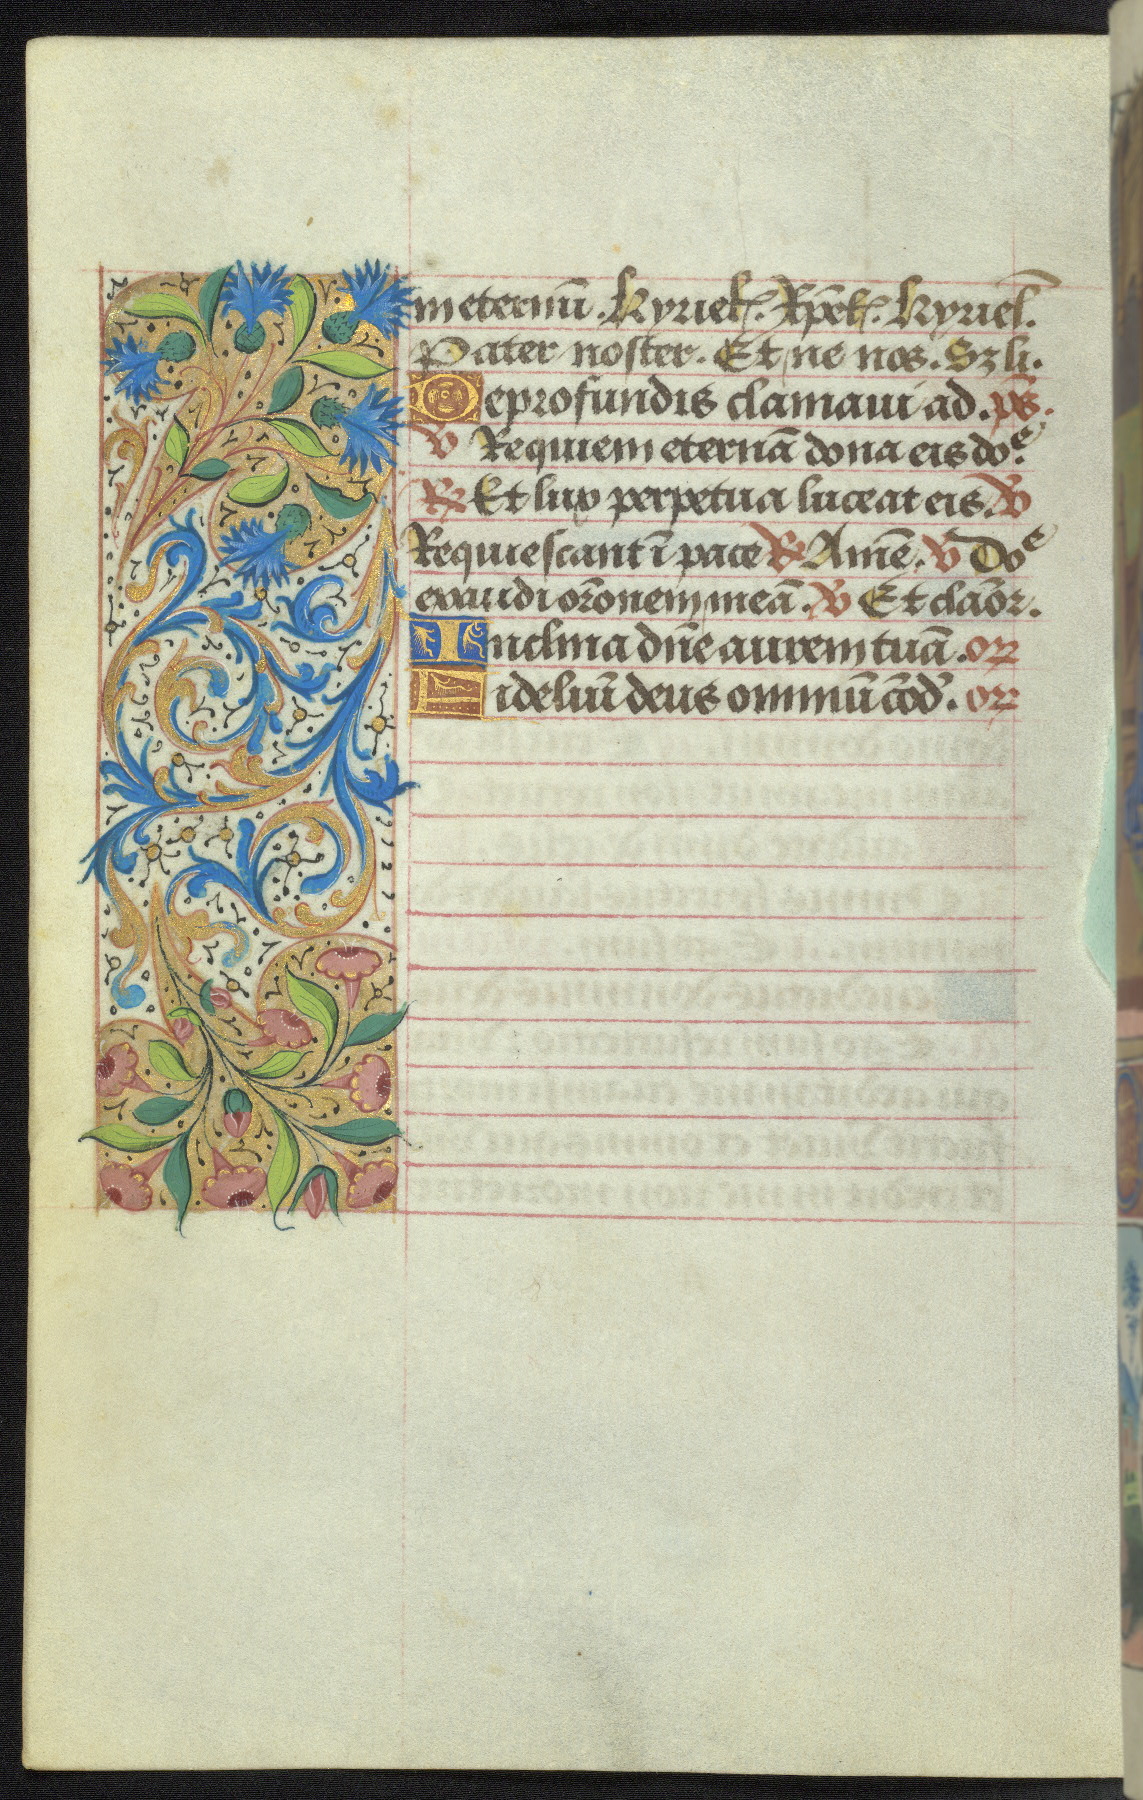 in eternū. Kyriel̄. Xp̄el̄. Kyriel̄.
Pater noster. Et ne nos. Sz li.
De profundis clamaui ad. ps̄.
V Requiem eternā dona eis doᵉ.
R Et lux perpetua luceat eis. V
Requiescant ī pace R Amē. V Doᵉ
exaudi orōnem meā. R Et clāor.
Inclina dn̄e aurem tuā. or
Fideliū deus omniū cōd'. or